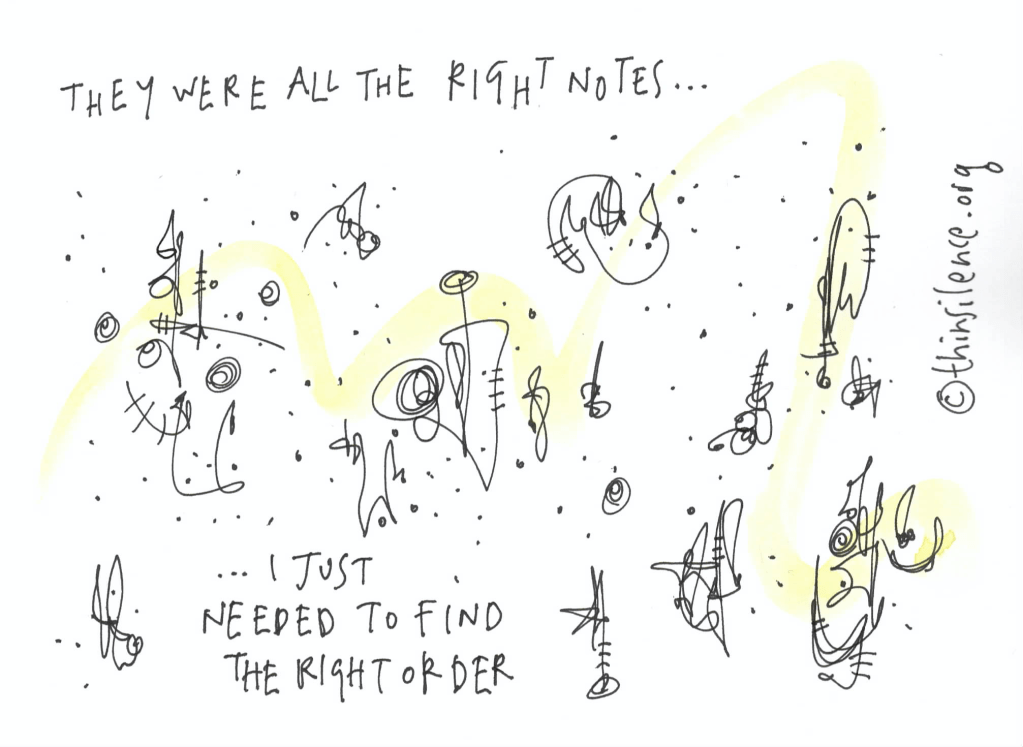 THEY WERE ALL THE RIGHT NOTES...
...I JUST
NEEDED TO FIND
THE RIGHT ORDER
©thinsilence.org